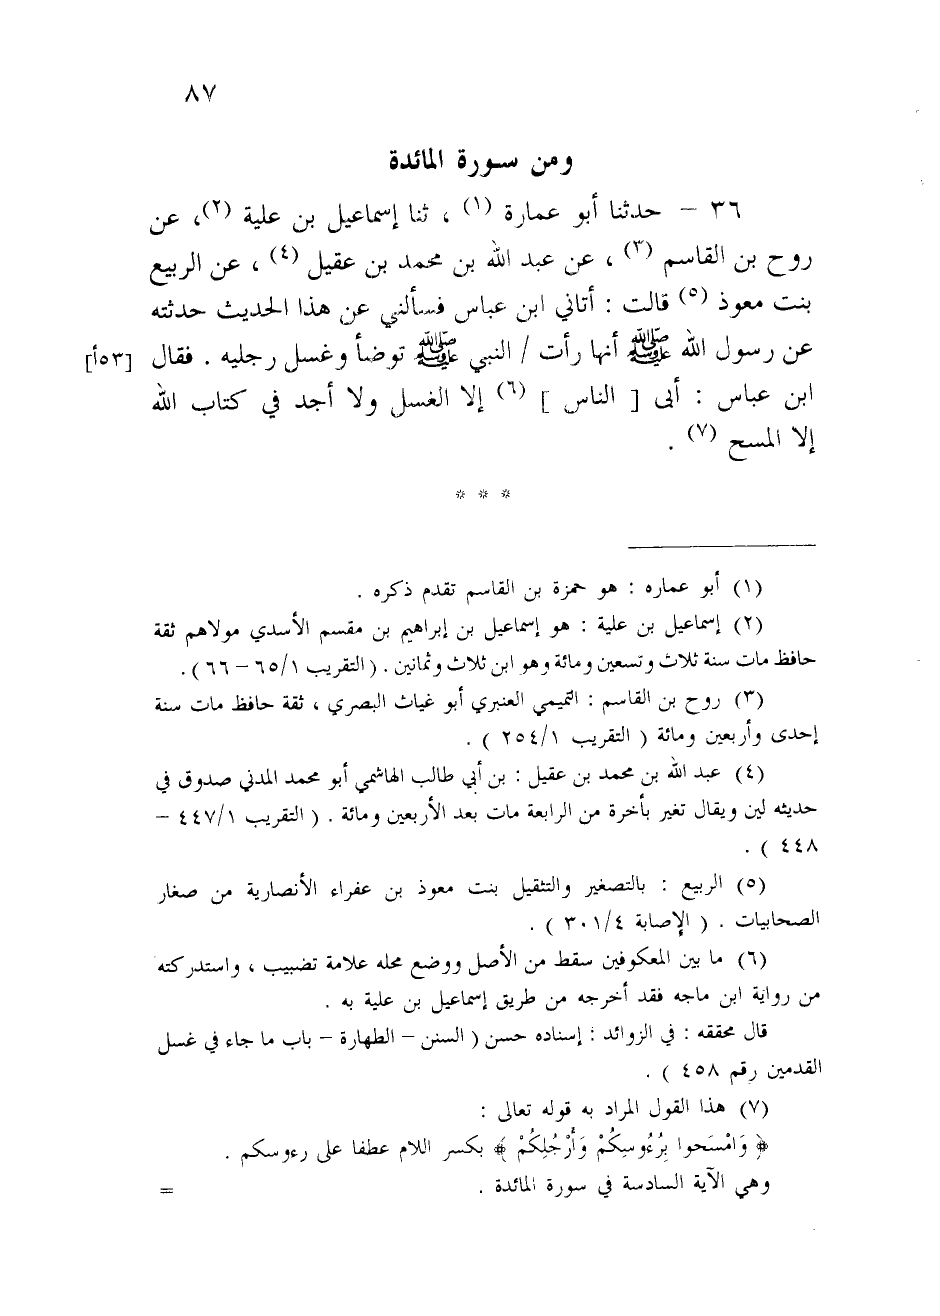 ٨٧
ومن سورة المائدة
٣٦ – حدثنا أبو عمارة (١) ، ثنا إسماعيل بن علية (٢)، عن
روح بن القاسم (٣) ، عن عبد الله بن محمد بن عقيل (٤) ، عن الربيع
بنت معوذ (٥) قالت : أتاني ابن عباس فسألني عن هذا الحديث حدثته
عن رسول الله ﷺ أنها رأت / النبي ﷺ توضأ وغسل رجليه . فقال [٥٣أ]
ابن عباس : أبى [ الناس ] (٦) إلا الغسل ولا أجد في كتاب الله
إلا المسح (٧) .
* * *
(١) أبو عماره : هو حمزة بن القاسم تقدم ذكره .
(٢) إسماعيل بن علية : هو إسماعيل بن إبراهيم بن مقسم الأسدي مولاهم ثقة
حافظ مات سنة ثلاث وتسعين ومائة وهو ابن ثلاث وثمانين . ( التقريب ٦٥/١ – ٦٦ ) .
(٣) روح بن القاسم : التميمي العنبري أبو غياث البصري ، ثقة حافظ مات سنة
إحدى وأربعين ومائة ( التقريب ٢٥٤/١ ) .
(٤) عبد الله بن محمد بن عقيل : بن أبي طالب الهاشمي أبو محمد المدني صدوق في
حديثه لين ويقال تغير بأخرة من الرابعة مات بعد الأربعين ومائة . ( التقريب ٤٤٧/١ –
٤٤٨ ) .
(٥) الربيع : بالتصغير والتثقيل بنت معوذ بن عفراء الأنصارية من صغار
الصحابيات . ( الإصابة ٣٠١/٤ ) .
(٦) ما بين المعكوفين سقط من الأصل ووضع محله علامة تضبيب ، واستدركته
من رواية ابن ماجه فقد أخرجه من طريق إسماعيل بن علية به .
قال محققه : في الزوائد : إسناده حسن ( السنن – الطهارة – باب ما جاء في غسل
القدمين رقم ٤٥٨ ) .
(٧) هذا القول المراد به قوله تعالى :
﴿ وَامْسَحوا بِرُءُوسِكُمْ وَأَرْجُلِكُمْ ﴾ بكسر اللام عطفا على رءوسكم .
وهي الآية السادسة في سورة المائدة . =